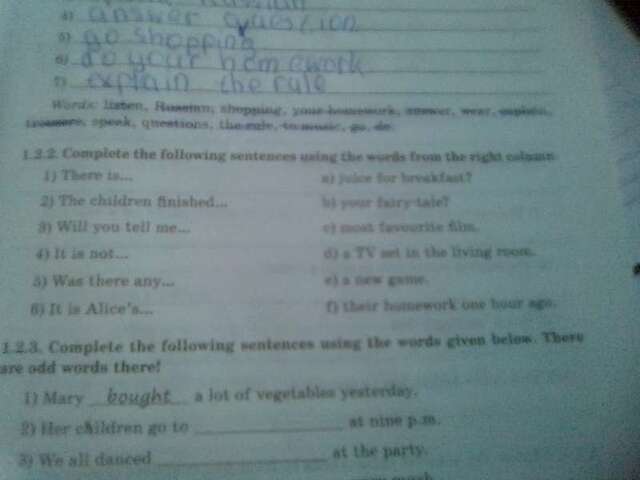 4) answer question
5) go shopping
6) do your homework
7) explain the rule
Words: listen, Russian, shopping, your homework, answer, wear, explain,
trousers, speak, questions, the rule, to music, go, do.
1.2.2. Complete the following sentences using the words from the right column.
1) There is... a) juice for breakfast?
2) The children finished... b) your fairy-tale?
3) Will you tell me... c) most favourite film.
4) It is not... d) a TV set in the living room.
5) Was there any... e) a new game.
6) It is Alice's... f) their homework one hour ago.
1.2.3. Complete the following sentences using the words given below. There
are odd words there!
1) Mary bought a lot of vegetables yesterday.
2) Her children go to at nine p.m.
3) We all danced at the party.